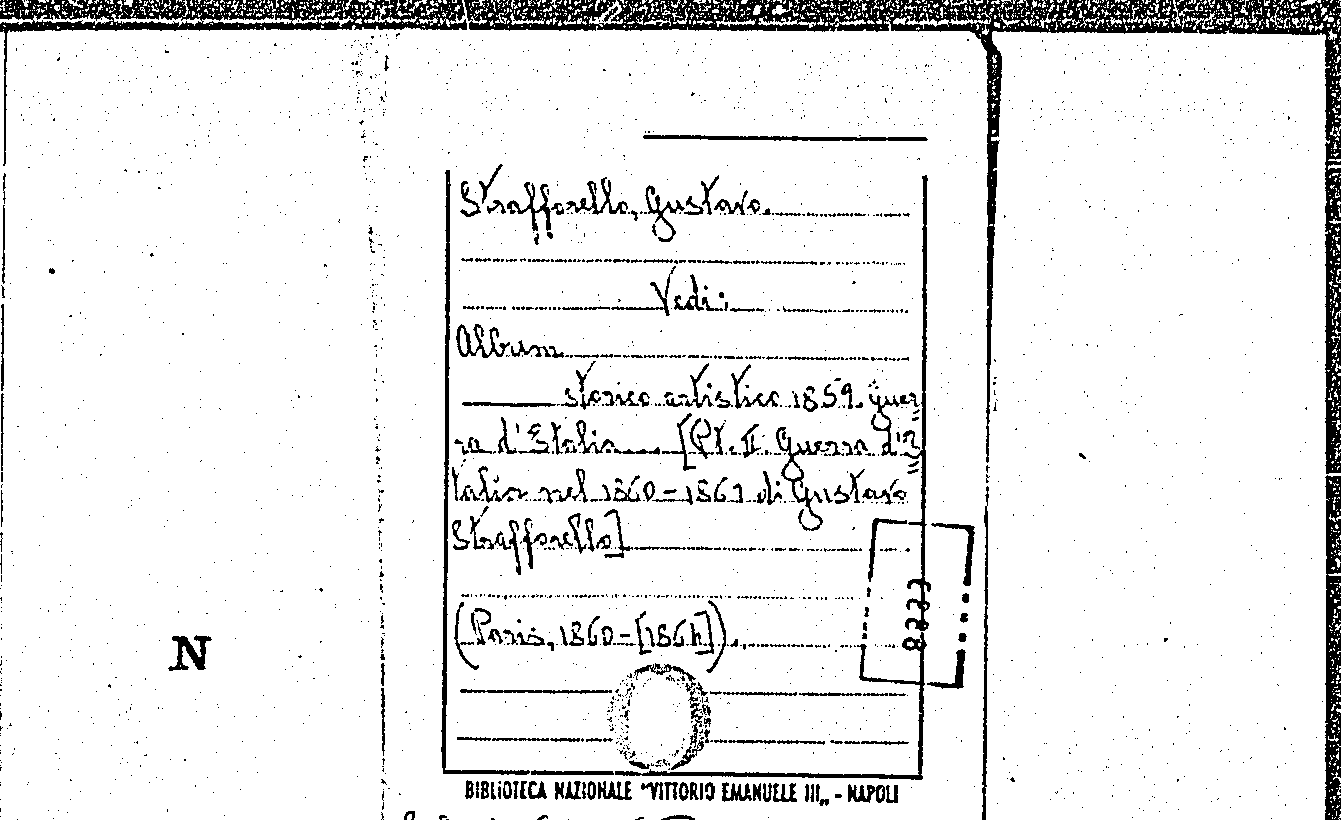 Strafforello, Gustavo.
Vedi:
Album
——— storico artistico 1859. Guer
ra d'Italia... [Pt. II. Guerra d'I
talia nel 1860-1861 di Gustavo
Strafforello]
(Paris, 1860-[1864]).
N
BIBLIOTECA NAZIONALE "VITTORIO EMANUELE III„ - NAPOLI